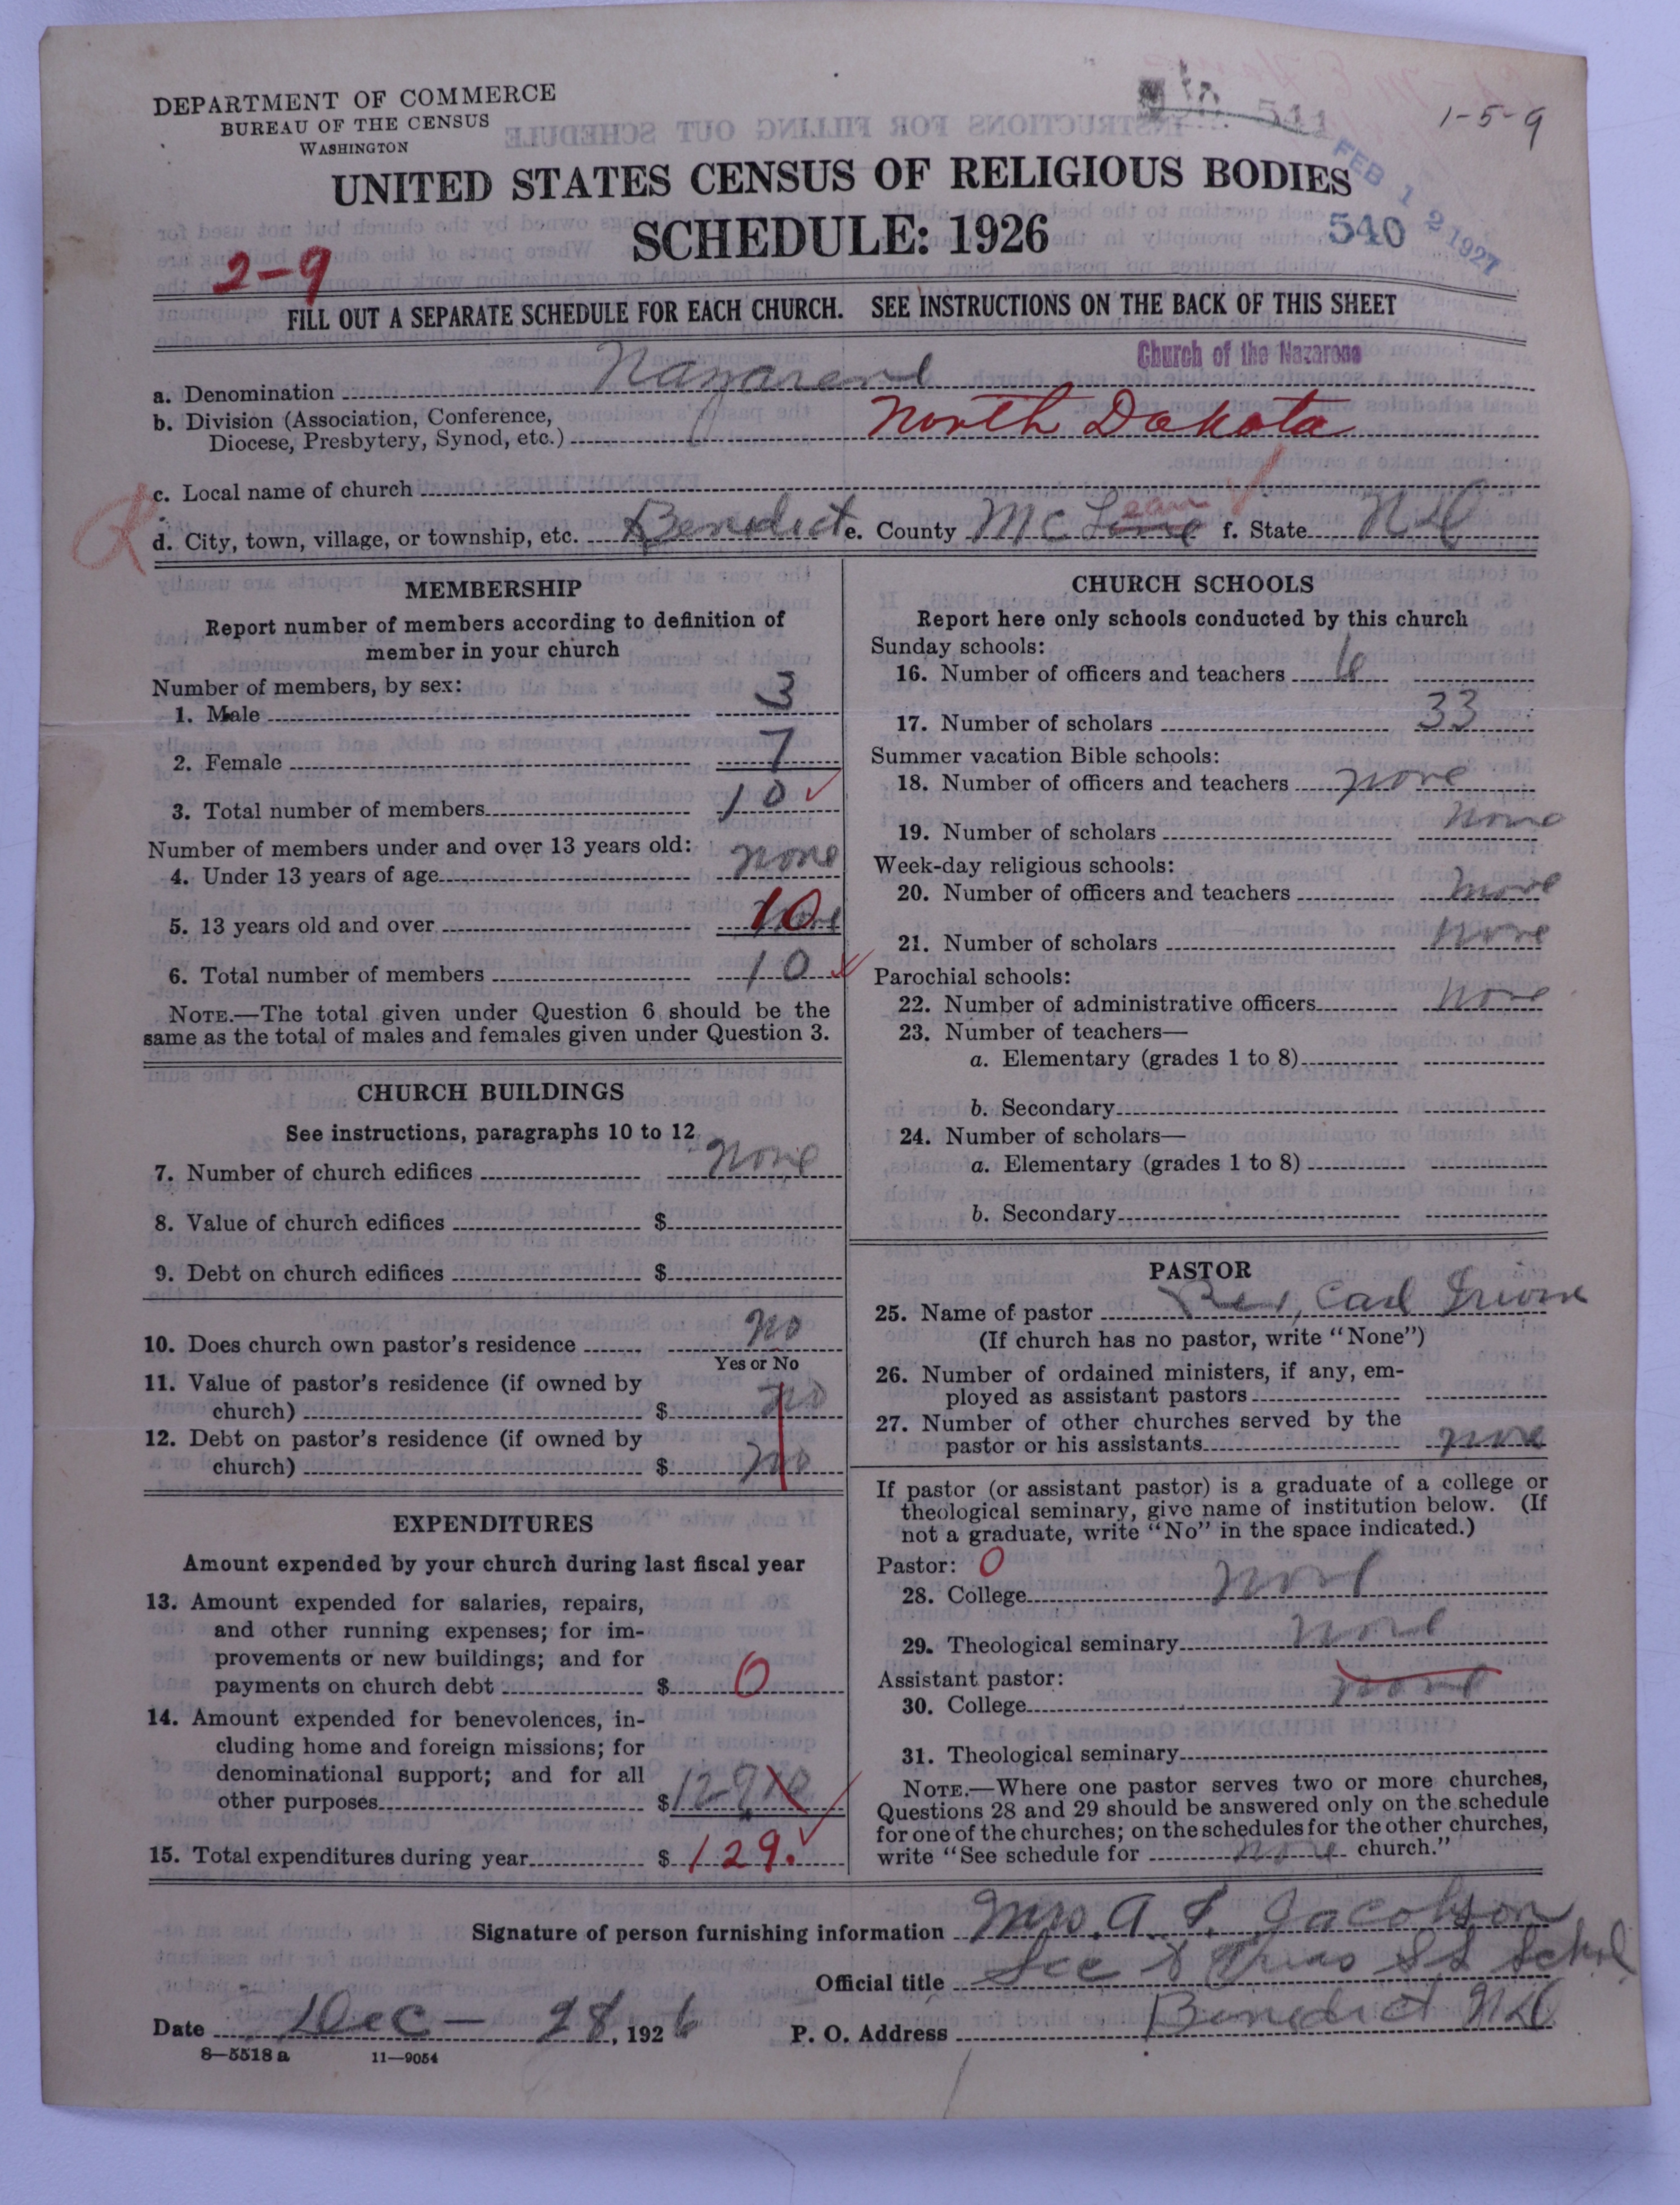 DEPARTMENT OF COMMERCE
BUREAU OF THE CENSUS
WASHINGTON
541
1-5-9
FEB 12 1927
UNITED STATES CENSUS OF RELIGIOUS BODIES
SCHEDULE: 1926
540
2-9
FILL OUT A SEPARATE SCHEDULE FOR EACH CHURCH. SEE INSTRUCTIONS ON THE BACK OF THIS SHEET
Church of the Nazarene
a. Denomination Nazarene
b. Division (Association, Conference,
Diocese, Presbytery, Synod, etc.) North Dakota
c. Local name of church
d. City, town, village, or township, etc. Benedict e. County McLean f. State ND
MEMBERSHIP
Report number of members according to definition of
member in your church
Number of members, by sex:
1. Male 3
2. Female 7
3. Total number of members 10
Number of members under and over 13 years old:
4. Under 13 years of age none
5. 13 years old and over 10
6. Total number of members 10
NOTE.—The total given under Question 6 should be the
same as the total of males and females given under Question 3.
CHURCH BUILDINGS
See instructions, paragraphs 10 to 12
7. Number of church edifices none
8. Value of church edifices $
9. Debt on church edifices $
10. Does church own pastor's residence no
Yes or No
11. Value of pastor's residence (if owned by
church) $ no
12. Debt on pastor's residence (if owned by
church) $ no
EXPENDITURES
Amount expended by your church during last fiscal year
13. Amount expended for salaries, repairs,
and other running expenses; for im-
provements or new buildings; and for
payments on church debt $ 0
14. Amount expended for benevolences, in-
cluding home and foreign missions; for
denominational support; and for all
other purposes $ 129
15. Total expenditures during year $ 129.
CHURCH SCHOOLS
Report here only schools conducted by this church
Sunday schools:
16. Number of officers and teachers 6
17. Number of scholars 33
Summer vacation Bible schools:
18. Number of officers and teachers none
19. Number of scholars none
Week-day religious schools:
20. Number of officers and teachers none
21. Number of scholars none
Parochial schools:
22. Number of administrative officers none
23. Number of teachers—
a. Elementary (grades 1 to 8)
b. Secondary
24. Number of scholars—
a. Elementary (grades 1 to 8)
b. Secondary
PASTOR
25. Name of pastor Rev, Carl
(If church has no pastor, write "None")
26. Number of ordained ministers, if any, em-
ployed as assistant pastors
27. Number of other churches served by the
pastor or his assistants none
If pastor (or assistant pastor) is a graduate of a college or
theological seminary, give name of institution below. (If
not a graduate, write "No" in the space indicated.)
Pastor: 0
28. College none
29. Theological seminary none
Assistant pastor:
30. College none
31. Theological seminary
NOTE.—Where one pastor serves two or more churches,
Questions 28 and 29 should be answered only on the schedule
for one of the churches; on the schedules for the other churches,
write "See schedule for none church."
Signature of person furnishing information Mrs. A. I. Jacobson
Official title Sec & Treas SS School
Date Dec - 28, 1926 P. O. Address Benedict ND
8-5518 a 11-9054